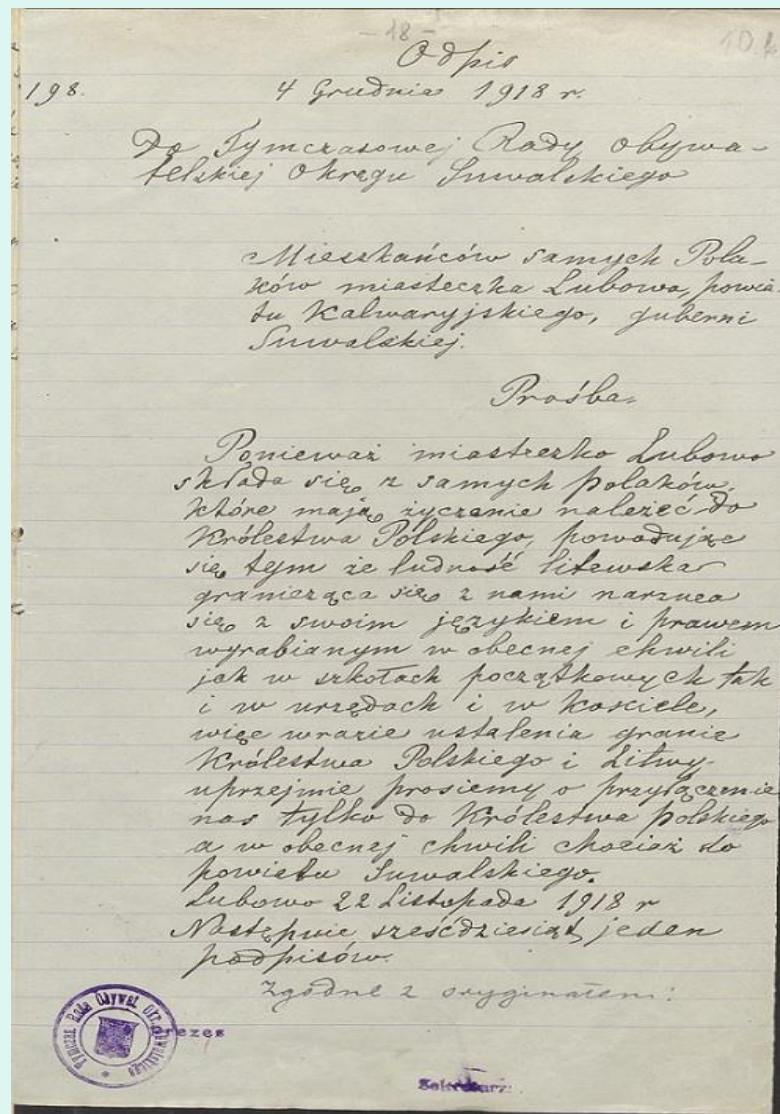 - 18 -
Odpis
198.
4 Grudnia 1918 r.
Do Tymczasowej Rady Obywa-
telskiej Okręgu Suwalskiego
Mieszkańców samych Pola-
ków miasteczka Lubowo, powia-
tu Kalwaryjskiego, guberni
Suwalskiej.
Prośba
Ponieważ miasteczko Lubowo
składa się z samych polaków,
które mają życzenie należeć do
Królestwa Polskiego, powodując
się tym że ludność litewska
granicząca się z nami narzuca
się z swoim językiem i prawem
wyrabianym w obecnej chwili
jak w szkołach początkowych tak
i w urzędach i w kościele,
więc wrazie ustalenia granic
Królestwa Polskiego i Litwy
uprzejmie prosiemy o przyłączenie
nas tylko do Królestwa Polskiego
a w obecnej chwili chociaż do
powiatu Suwalskiego.
Lubowo 22 Listopada 1918 r
Następnie sześćdziesiąt jeden
podpisów.
Zgodne z oryginałem:
Prezes
Sekretarz: